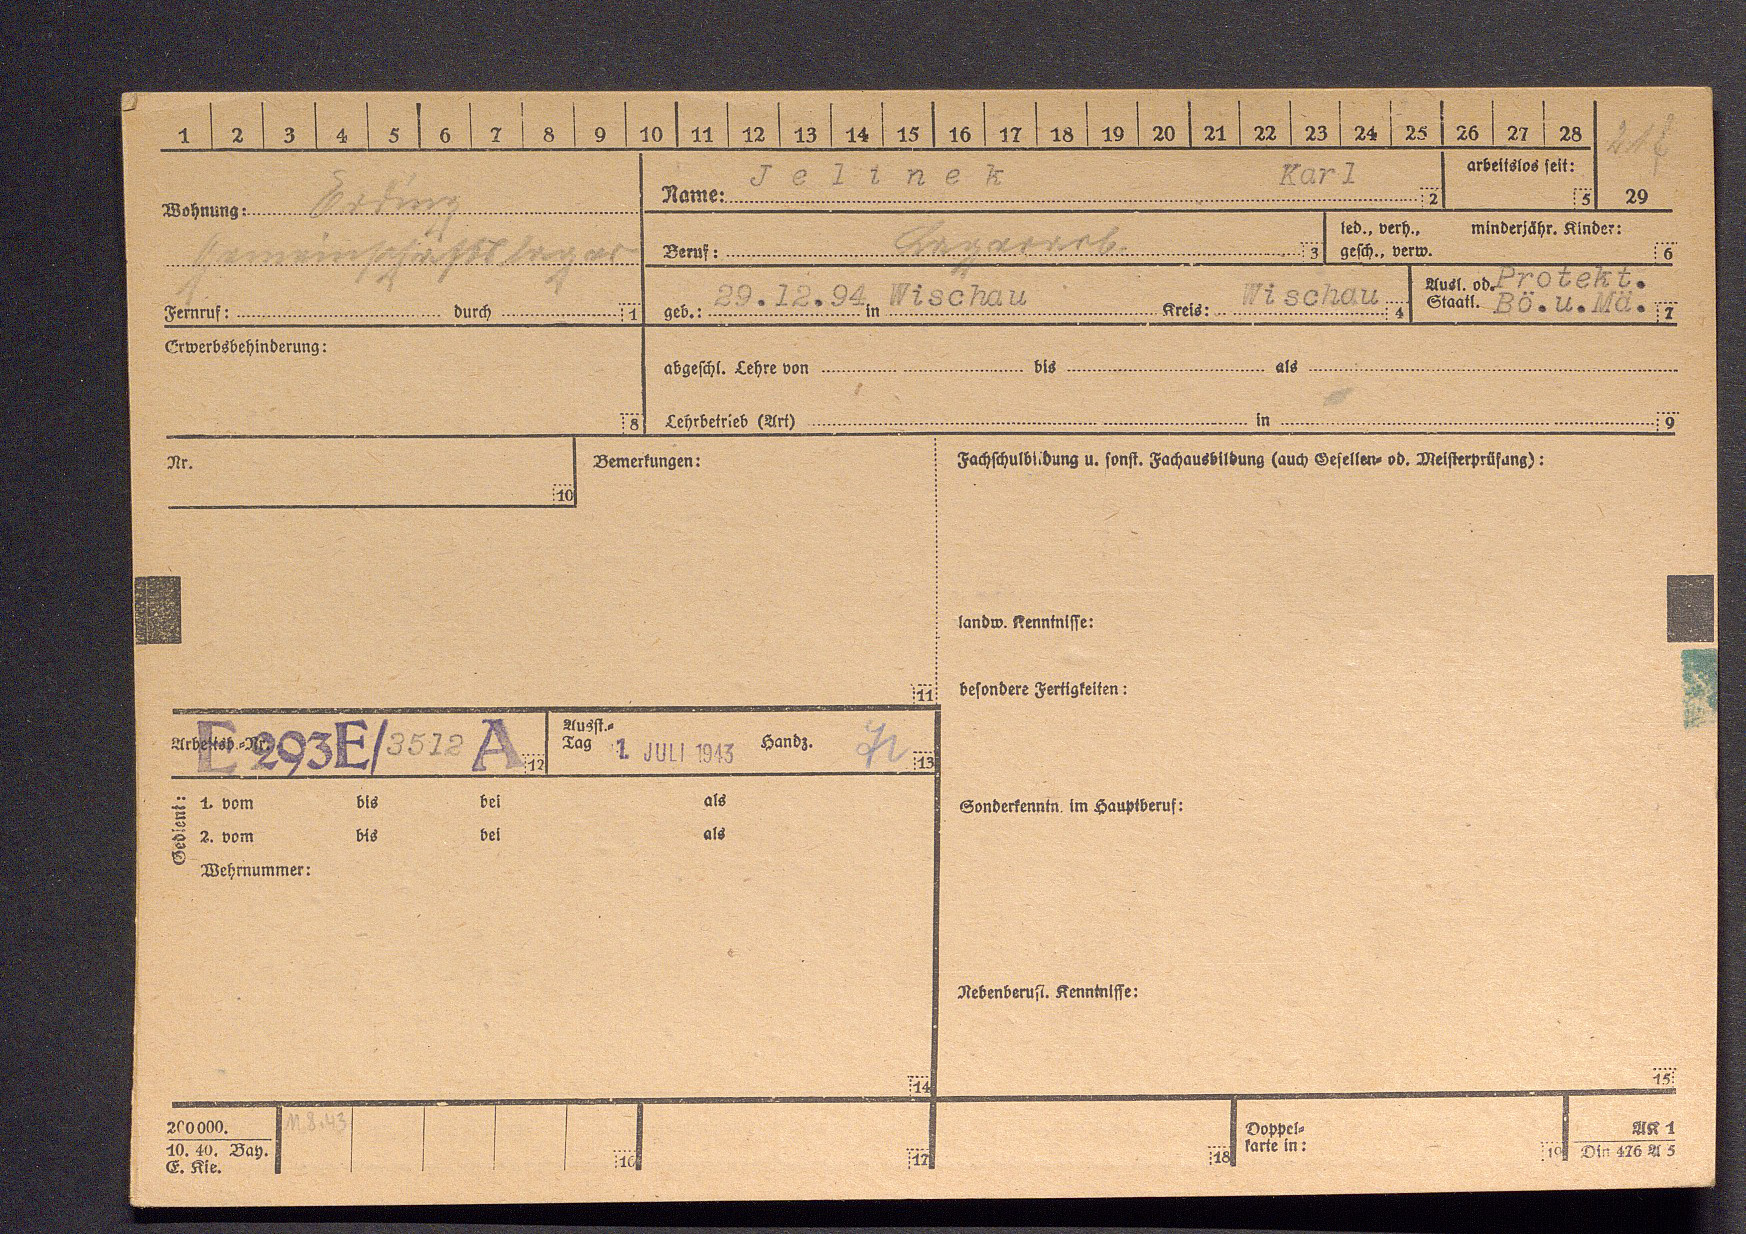 1 2 3 4 5 6 7 8 9 10 11 12 13 14 15 16 17 18 19 20 21 22 23 24 25 26 27 28
29
Wohnung: Erding
Gemeinschaftslager
Fernruf: durch 1
Name: Jelinek Karl 2
arbeitslos seit: 5
Beruf: Lagerarb. 3
led., verh., minderjähr. Kinder:
gesch., verw. 6
geb.: 29.12.94 in Wischau Kreis: Wischau 4
Ausl. od. Protekt.
Staatl. Bö.u.Mä. 7
Erwerbsbehinderung:
8
abgeschl. Lehre von bis als
Lehrbetrieb (Art) in 9
Nr.
10
Bemerkungen:
11
Fachschulbildung u. sonst. Fachausbildung (auch Gesellen- od. Meisterprüfung):
landw. Kenntnisse:
besondere Fertigkeiten:
Sonderkenntn. im Hauptberuf:
Nebenberufl. Kenntnisse:
15
Arbeitsb.-Nr. E 293E/3512 A 12
Ausst.-
Tag 1. JULI 1943 Handz. 13
Gedient:
1. vom bis bei als
2. vom bis bei als
Wehrnummer:
14
200000.
10. 40. Bay.
E. Kie.
11.8.43
16
17
18
Doppel-
karte in:
19
AK 1
Din 476 A 5